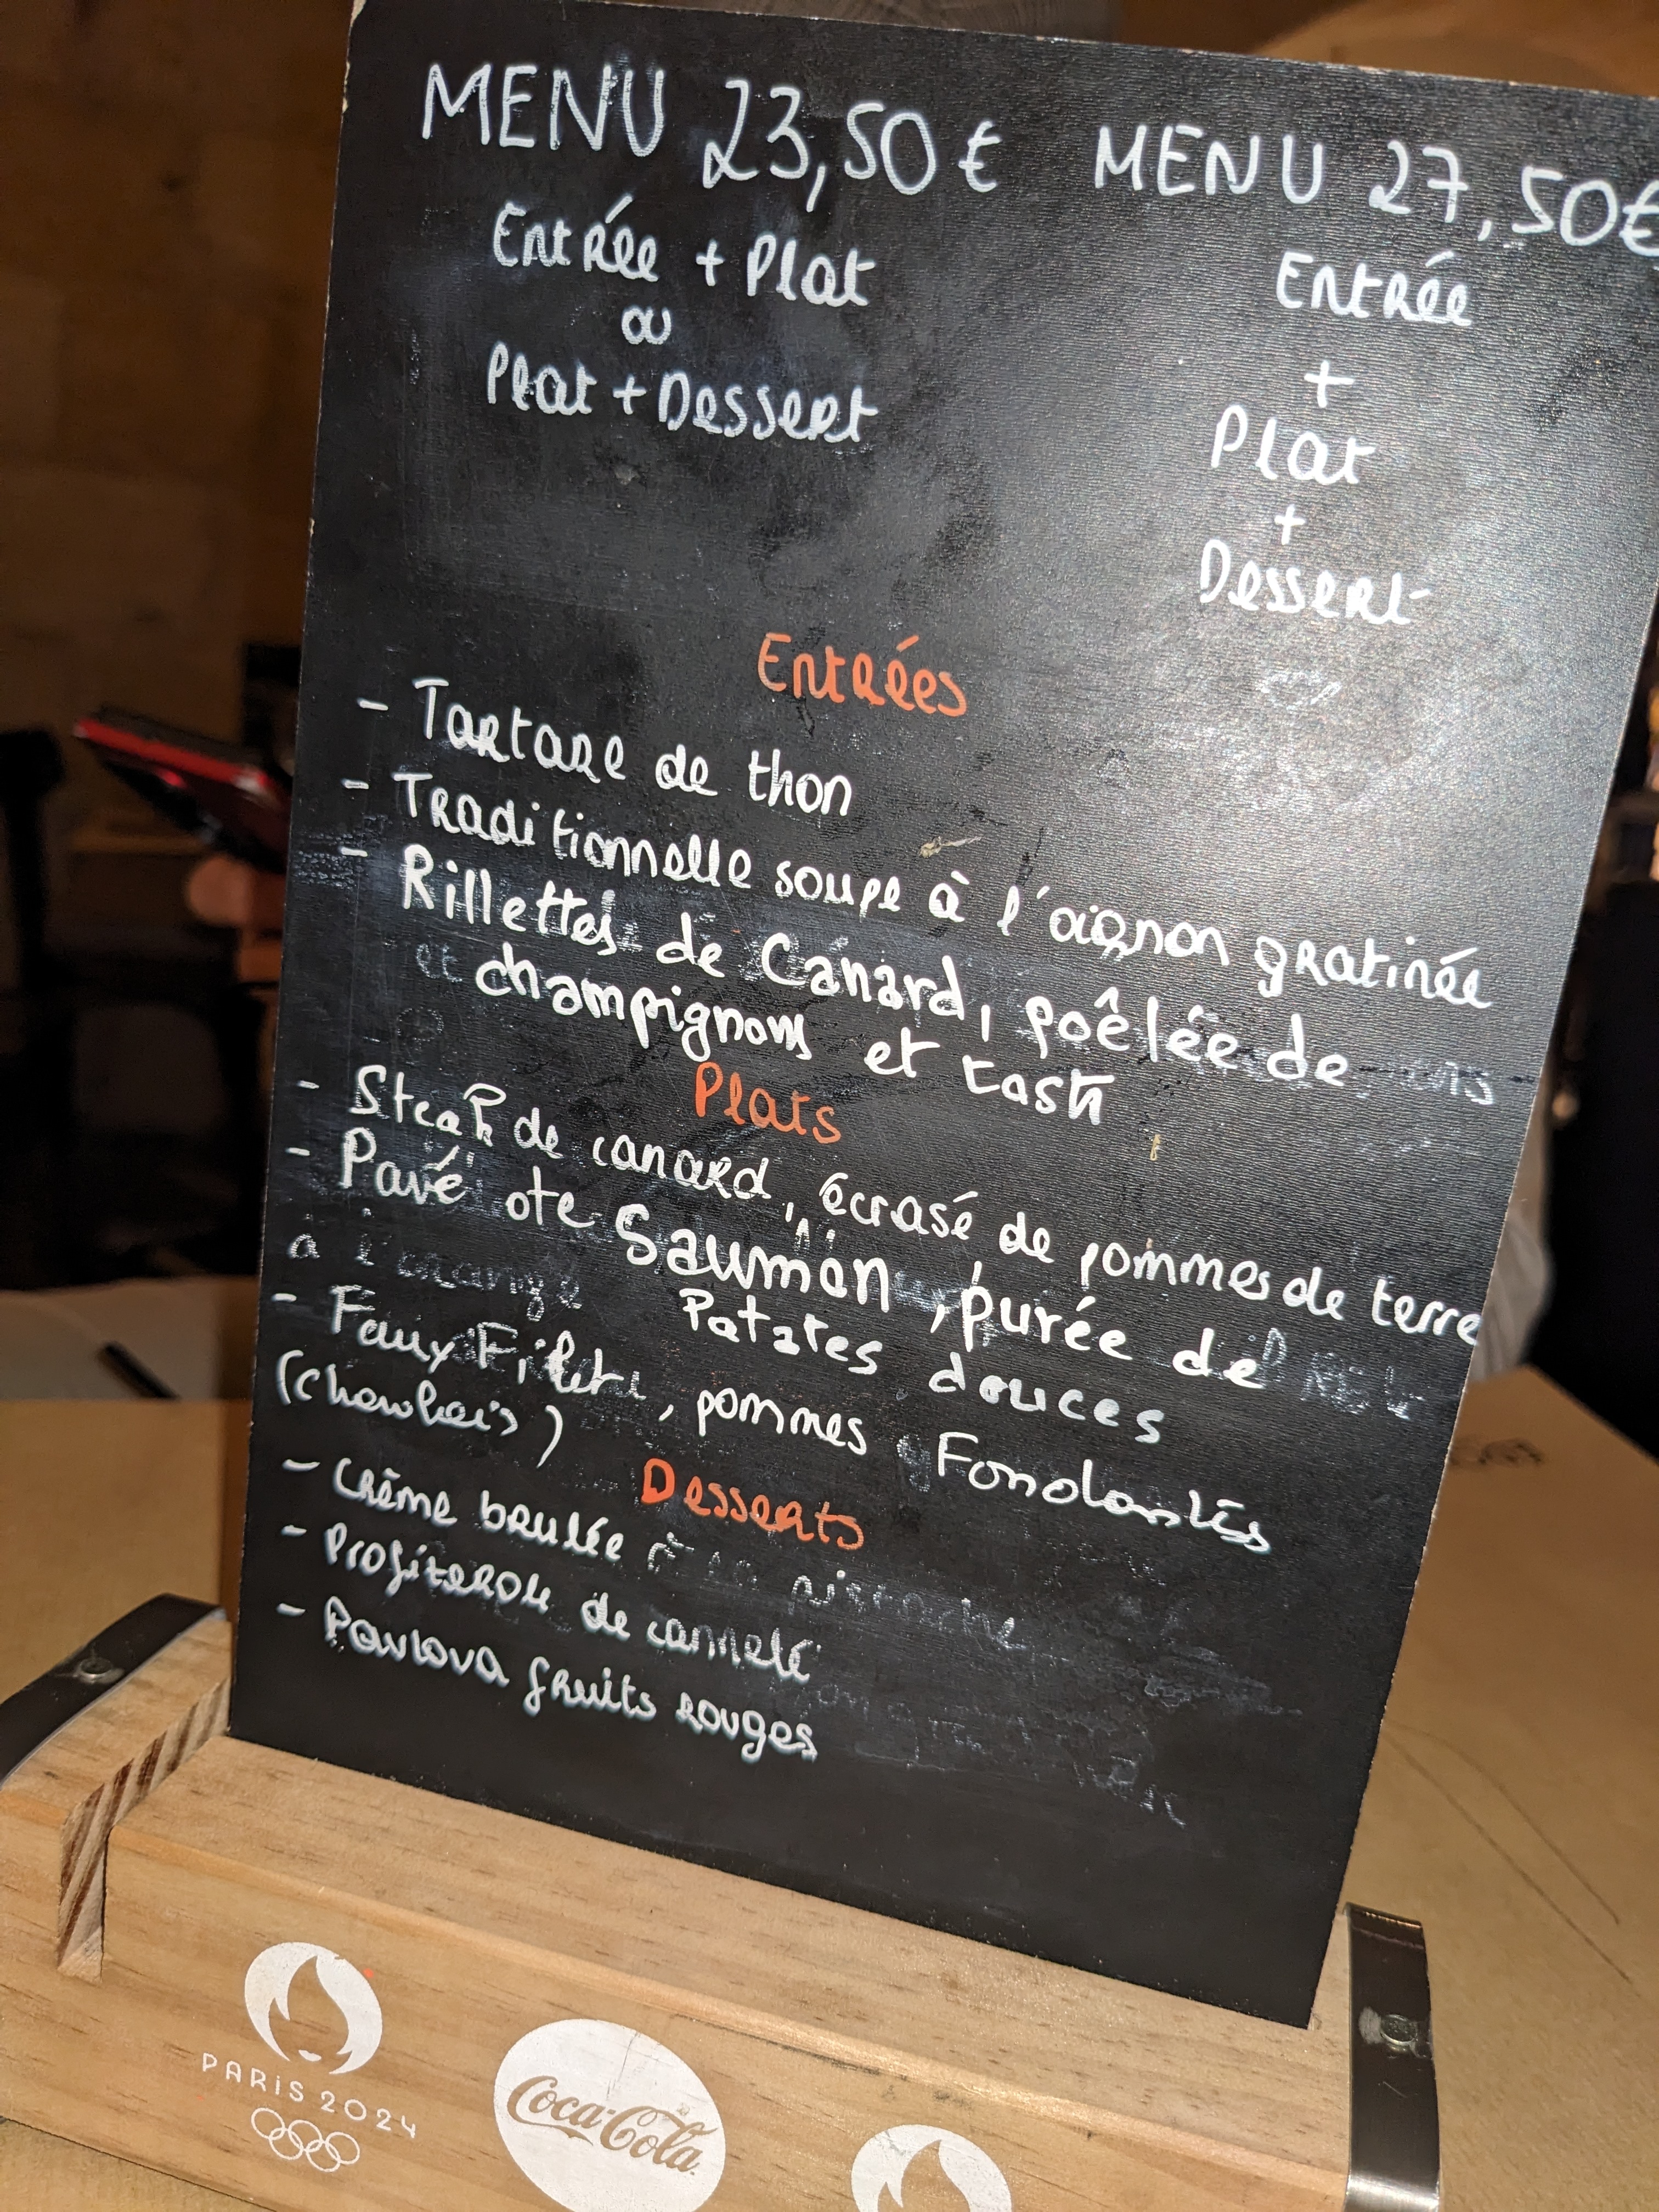 MENU 23,50€ MENU 27,50€
Entrée + Plat
ou
Plat + Dessert
Entrée
+
Plat
+
Dessert
Entrées
- Tartare de thon
- Traditionnelle soupe à l'oignon gratinée
- Rillettes de Canard, poêlée de
champignons et tosti
Plats
- Steak de canard, écrasé de pommes de terre
- Pavé de Saumon, purée de
Patates douces
à l'orange
- Faux Filet, pommes Fondantes
(charolais)
Desserts
- Crème brulée à la pistache
- Profiterole de cannelé
- Pavlova fruits rouges
PARIS 2024
Coca-Cola